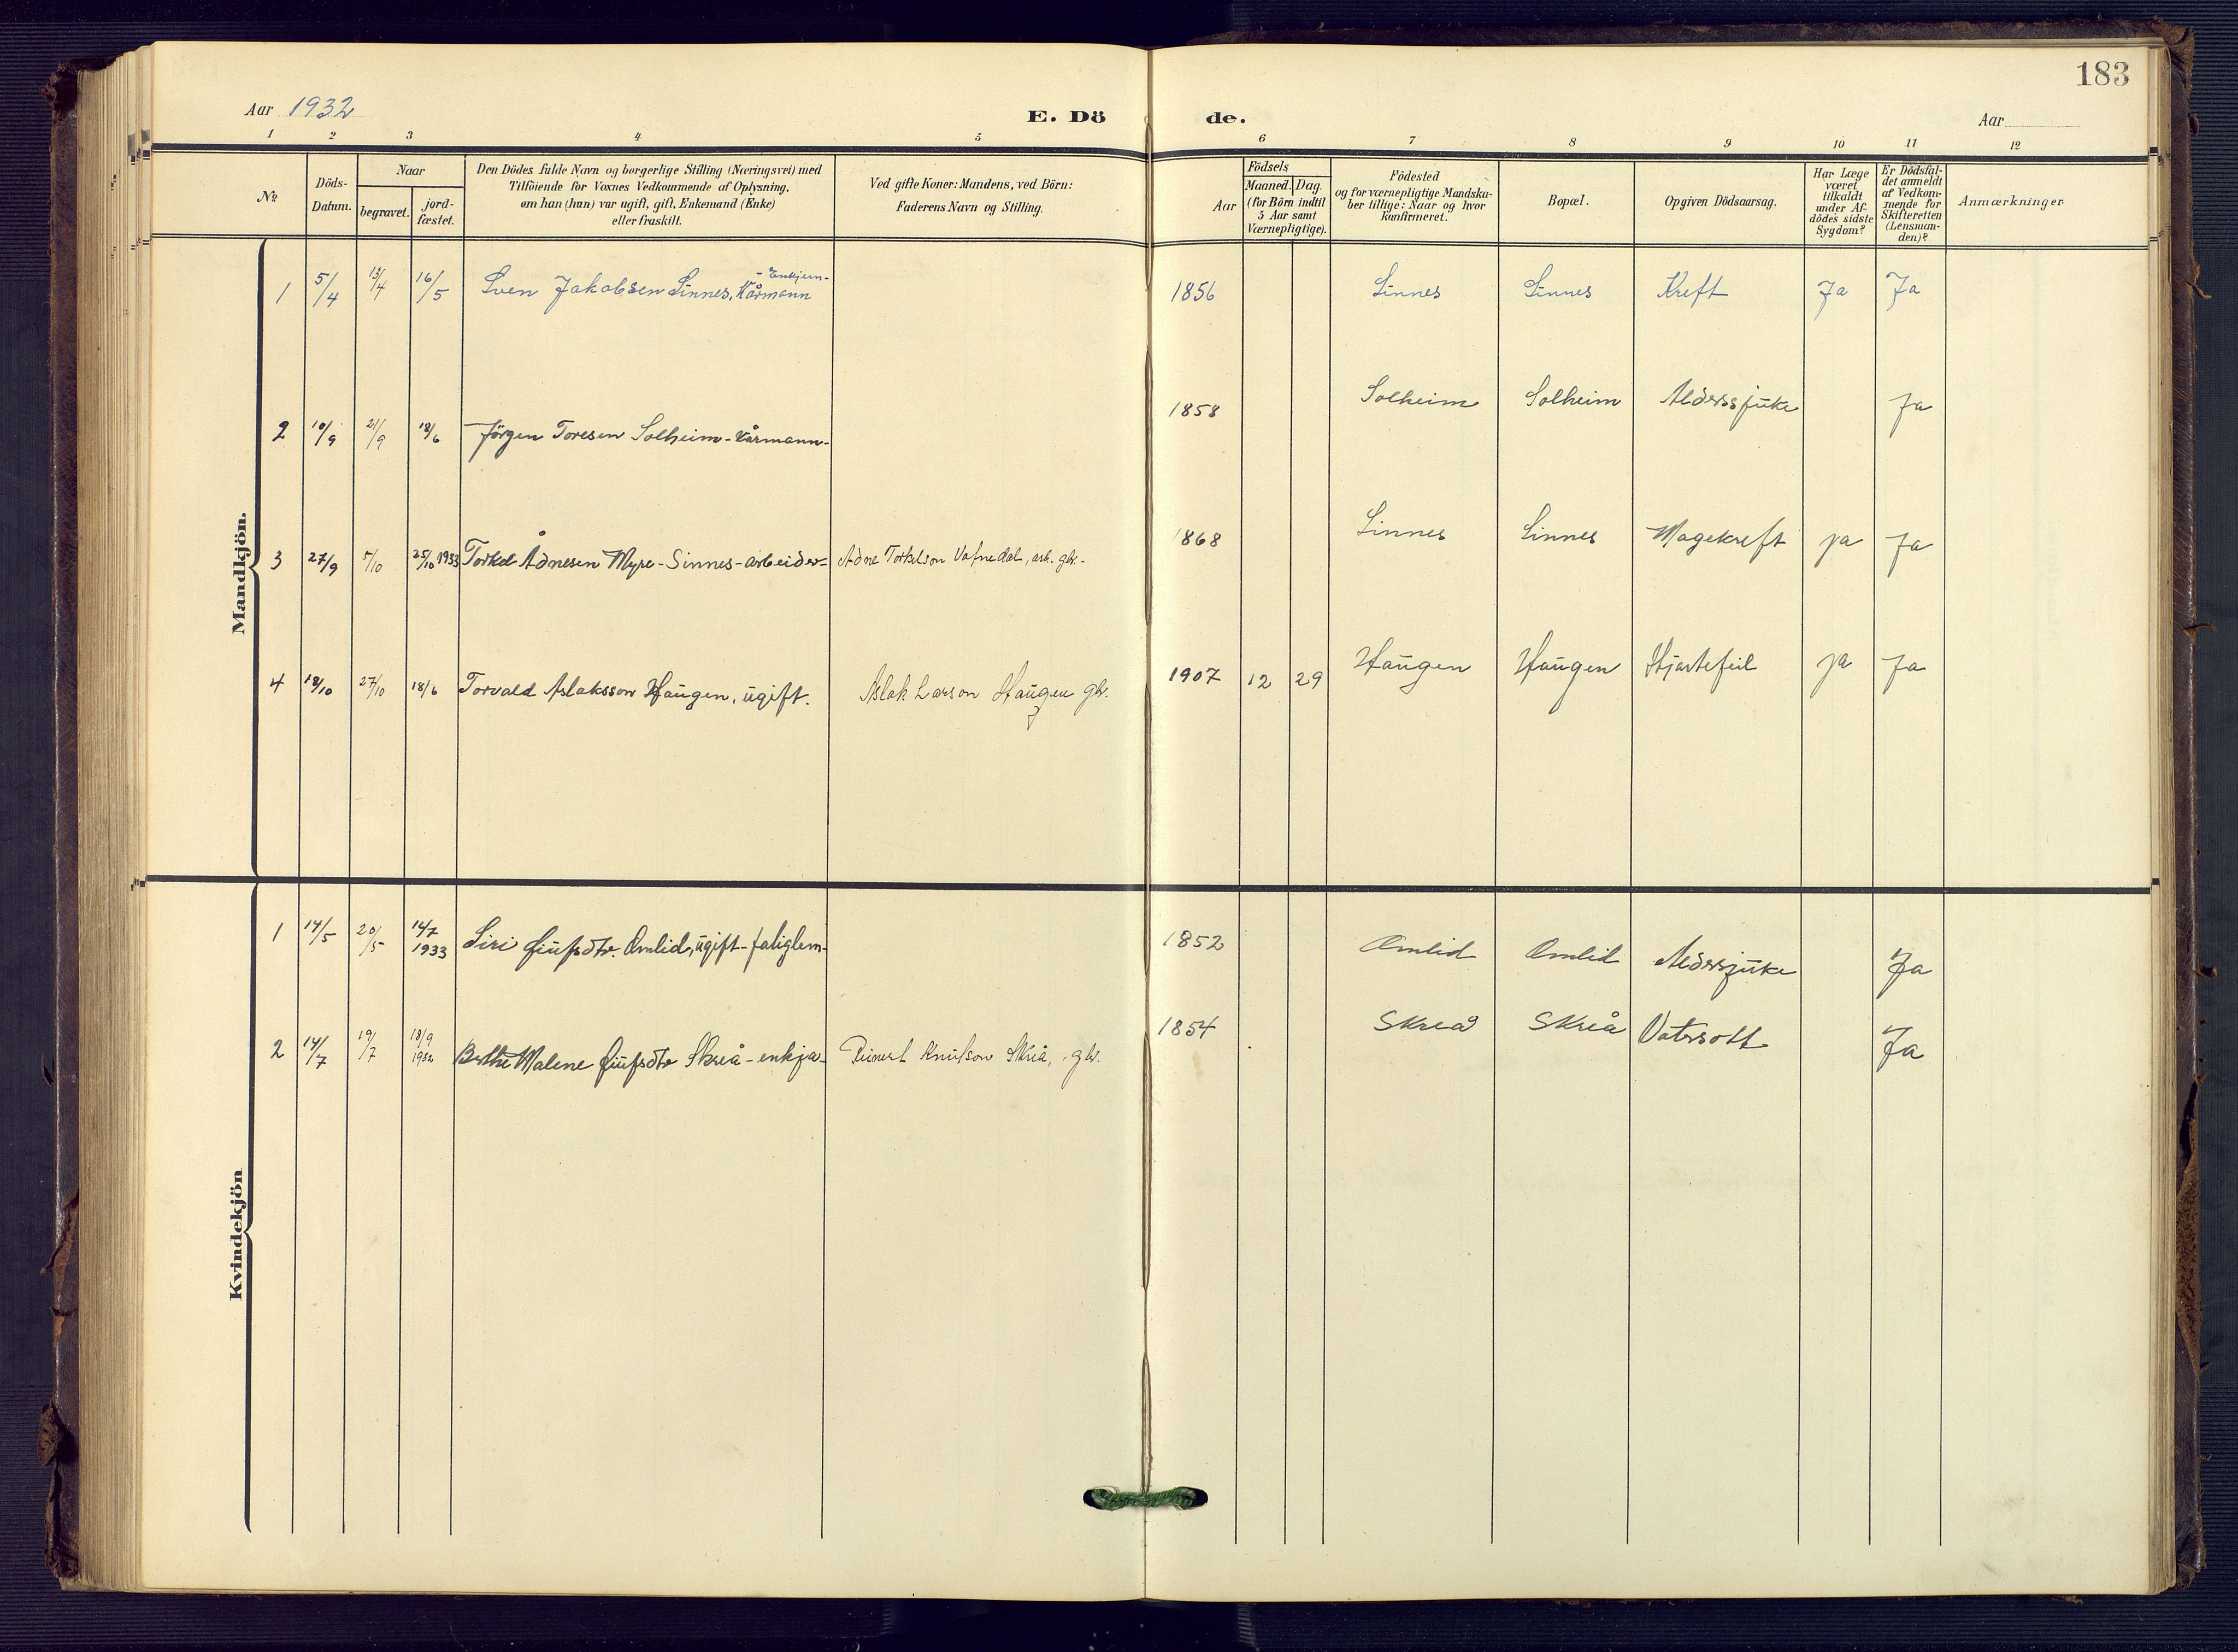 183
Aar 1932
E. Dö
de.
Aar
1 2 3 4 5 6 7 8 9 10 11 12
No
Döds-
Datum.
Naar
begravet.
jord-
fæstet.
Den Dödes fulde Navn og borgerlige Stilling (Næringsvei) med
Tilföiende for Voxnes Vedkommende af Oplysning,
om han (hun) var ugift, gift, Enkemand (Enke)
eller fraskilt.
Ved gifte Koner: Mandens, ved Börn:
Faderens Navn og Stilling.
Födsels
Aar
Maaned. Dag.
(for Börn indtil
5 Aar samt
Værnepligtige).
Födested
og for værnepligtige Mandska-
ber tillige: Naar og hvor
konfirmeret.
Bopæl.
Opgiven Dödsaarsag.
Har Læge
været
tilkaldt
under Af-
dödes sidste
Sygdom?
Er Dödsfal-
det anmeldt
af Vedkom-
mende for
Skifteretten
(Lensman-
den)?
Anmærkninger
Mandkjön.
1 5/4 13/4 16/5 Sven Jakobsen Sinnes, Kårmann - Enkjem- 1856 Sinnes Sinnes Kreft Ja Ja
2 10/9 21/9 18/6 Jörgen Toresen Solheim - kårmann- 1858 Solheim Solheim Alderssjuke Ja
3 27/9 5/10 25/10 1933 Torkel Ådnesen Myre - Sinnes - arbeider- Adne Torkelson Vafnedal, arb. gbr. 1868 Sinnes Sinnes Magekreft ja Ja
4 18/10 27/10 18/6 Torvald Aslaksson Haugen, ugift. Aslak Larson Haugen gbr. 1907 12 29 Haugen Haugen Hjartefeil ja Ja
Kvindekjön
1 14/5 20/5 14/7 1933 Siri Omlid, ugift - 1852 Omlid Omlid Alderssjuke Ja
2 14/7 19/7 18/9 1932 Berthe Malene Skreå - enkja- Reinert Knutson Skreå, gbr. 1854 Skreå Skreå Vatersott Ja